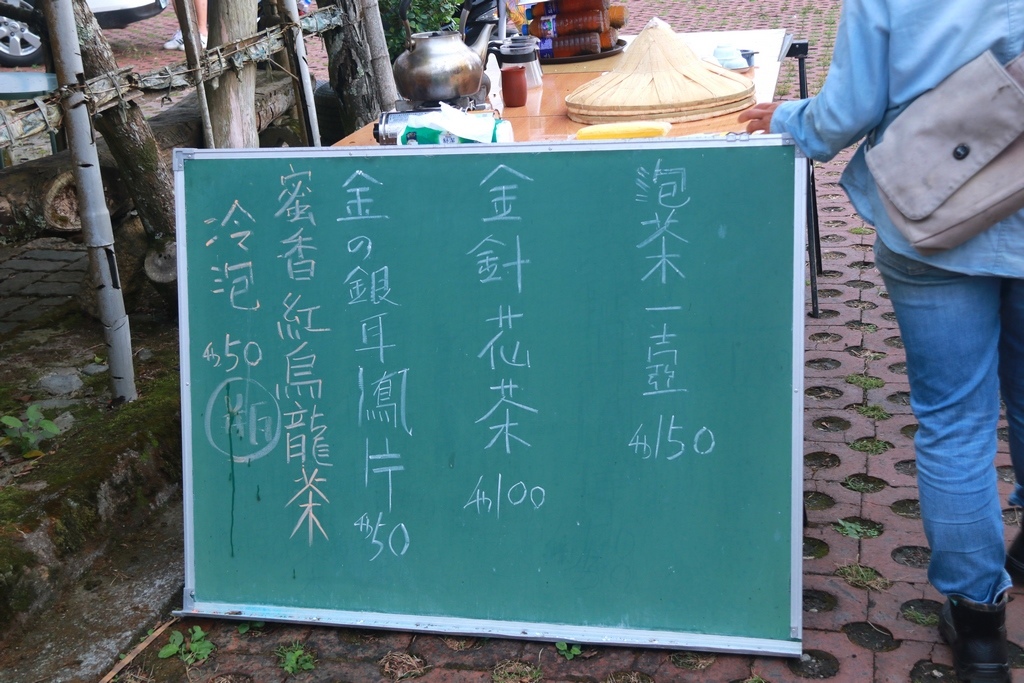 泡茶一壺 $150
金針花茶 $100
金の銀耳鳳片 $50
蜜香紅烏龍茶
冷泡 $50